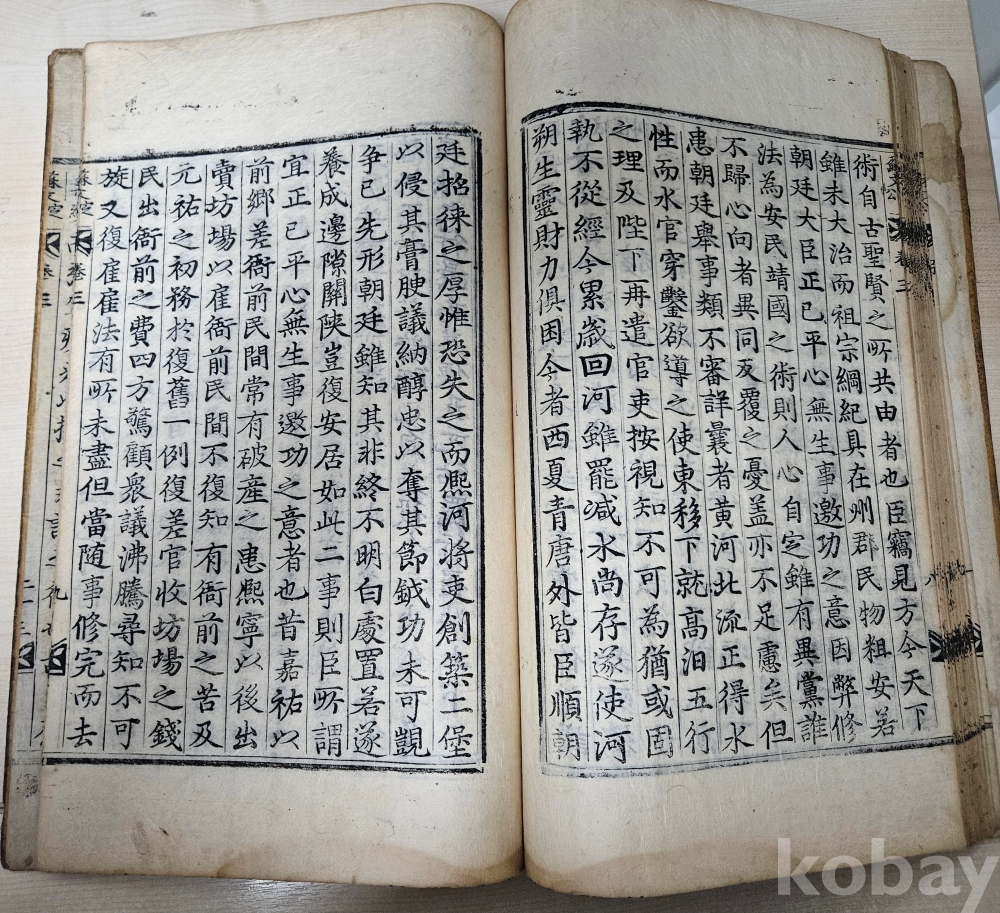 術自古聖賢之所共由者也臣竊見方今天下
雖未大治而祖宗綱紀具在州群民物粗安若
朝廷大臣正已平心無生事邀功之意因弊修
法為安民靖國之術則人心自定雖有異黨誰
不歸心向者異同反覆之憂盖亦不足慮矣但
患朝廷舉事類不審詳曩者黃河北流正得水
性而水官穿鑿欲導之使東移下就高汩五行
之理及陛下再遣官吏按視知不可為猶或固
執不從經今累歲回河雖罷減水尚存遂使河
朔生靈財力俱困今者西夏青唐外皆臣順朝
廷招徠之厚惟恐失之而熈河將吏創築二堡
以侵其膏腴議納醇忠以奪其節鉞功未可覬
争已先形朝廷雖知其非終不明白處置若遂
養成邊隙關陜豈復安居如此二事則臣所謂
宜正已平心無生事邀功之意者也昔嘉祐以
前鄉差衙前民間常有破產之患熈寧以後出
賣坊場以雇衙前民間不復知有衙前之苦及
元祐之初務於復舊一例復差官收坊場之錢
民出衙前之費四方驚顧衆議沸騰尋知不可
旋又復雇雇法有所未盡但當随事修完而去
卷三
kobay